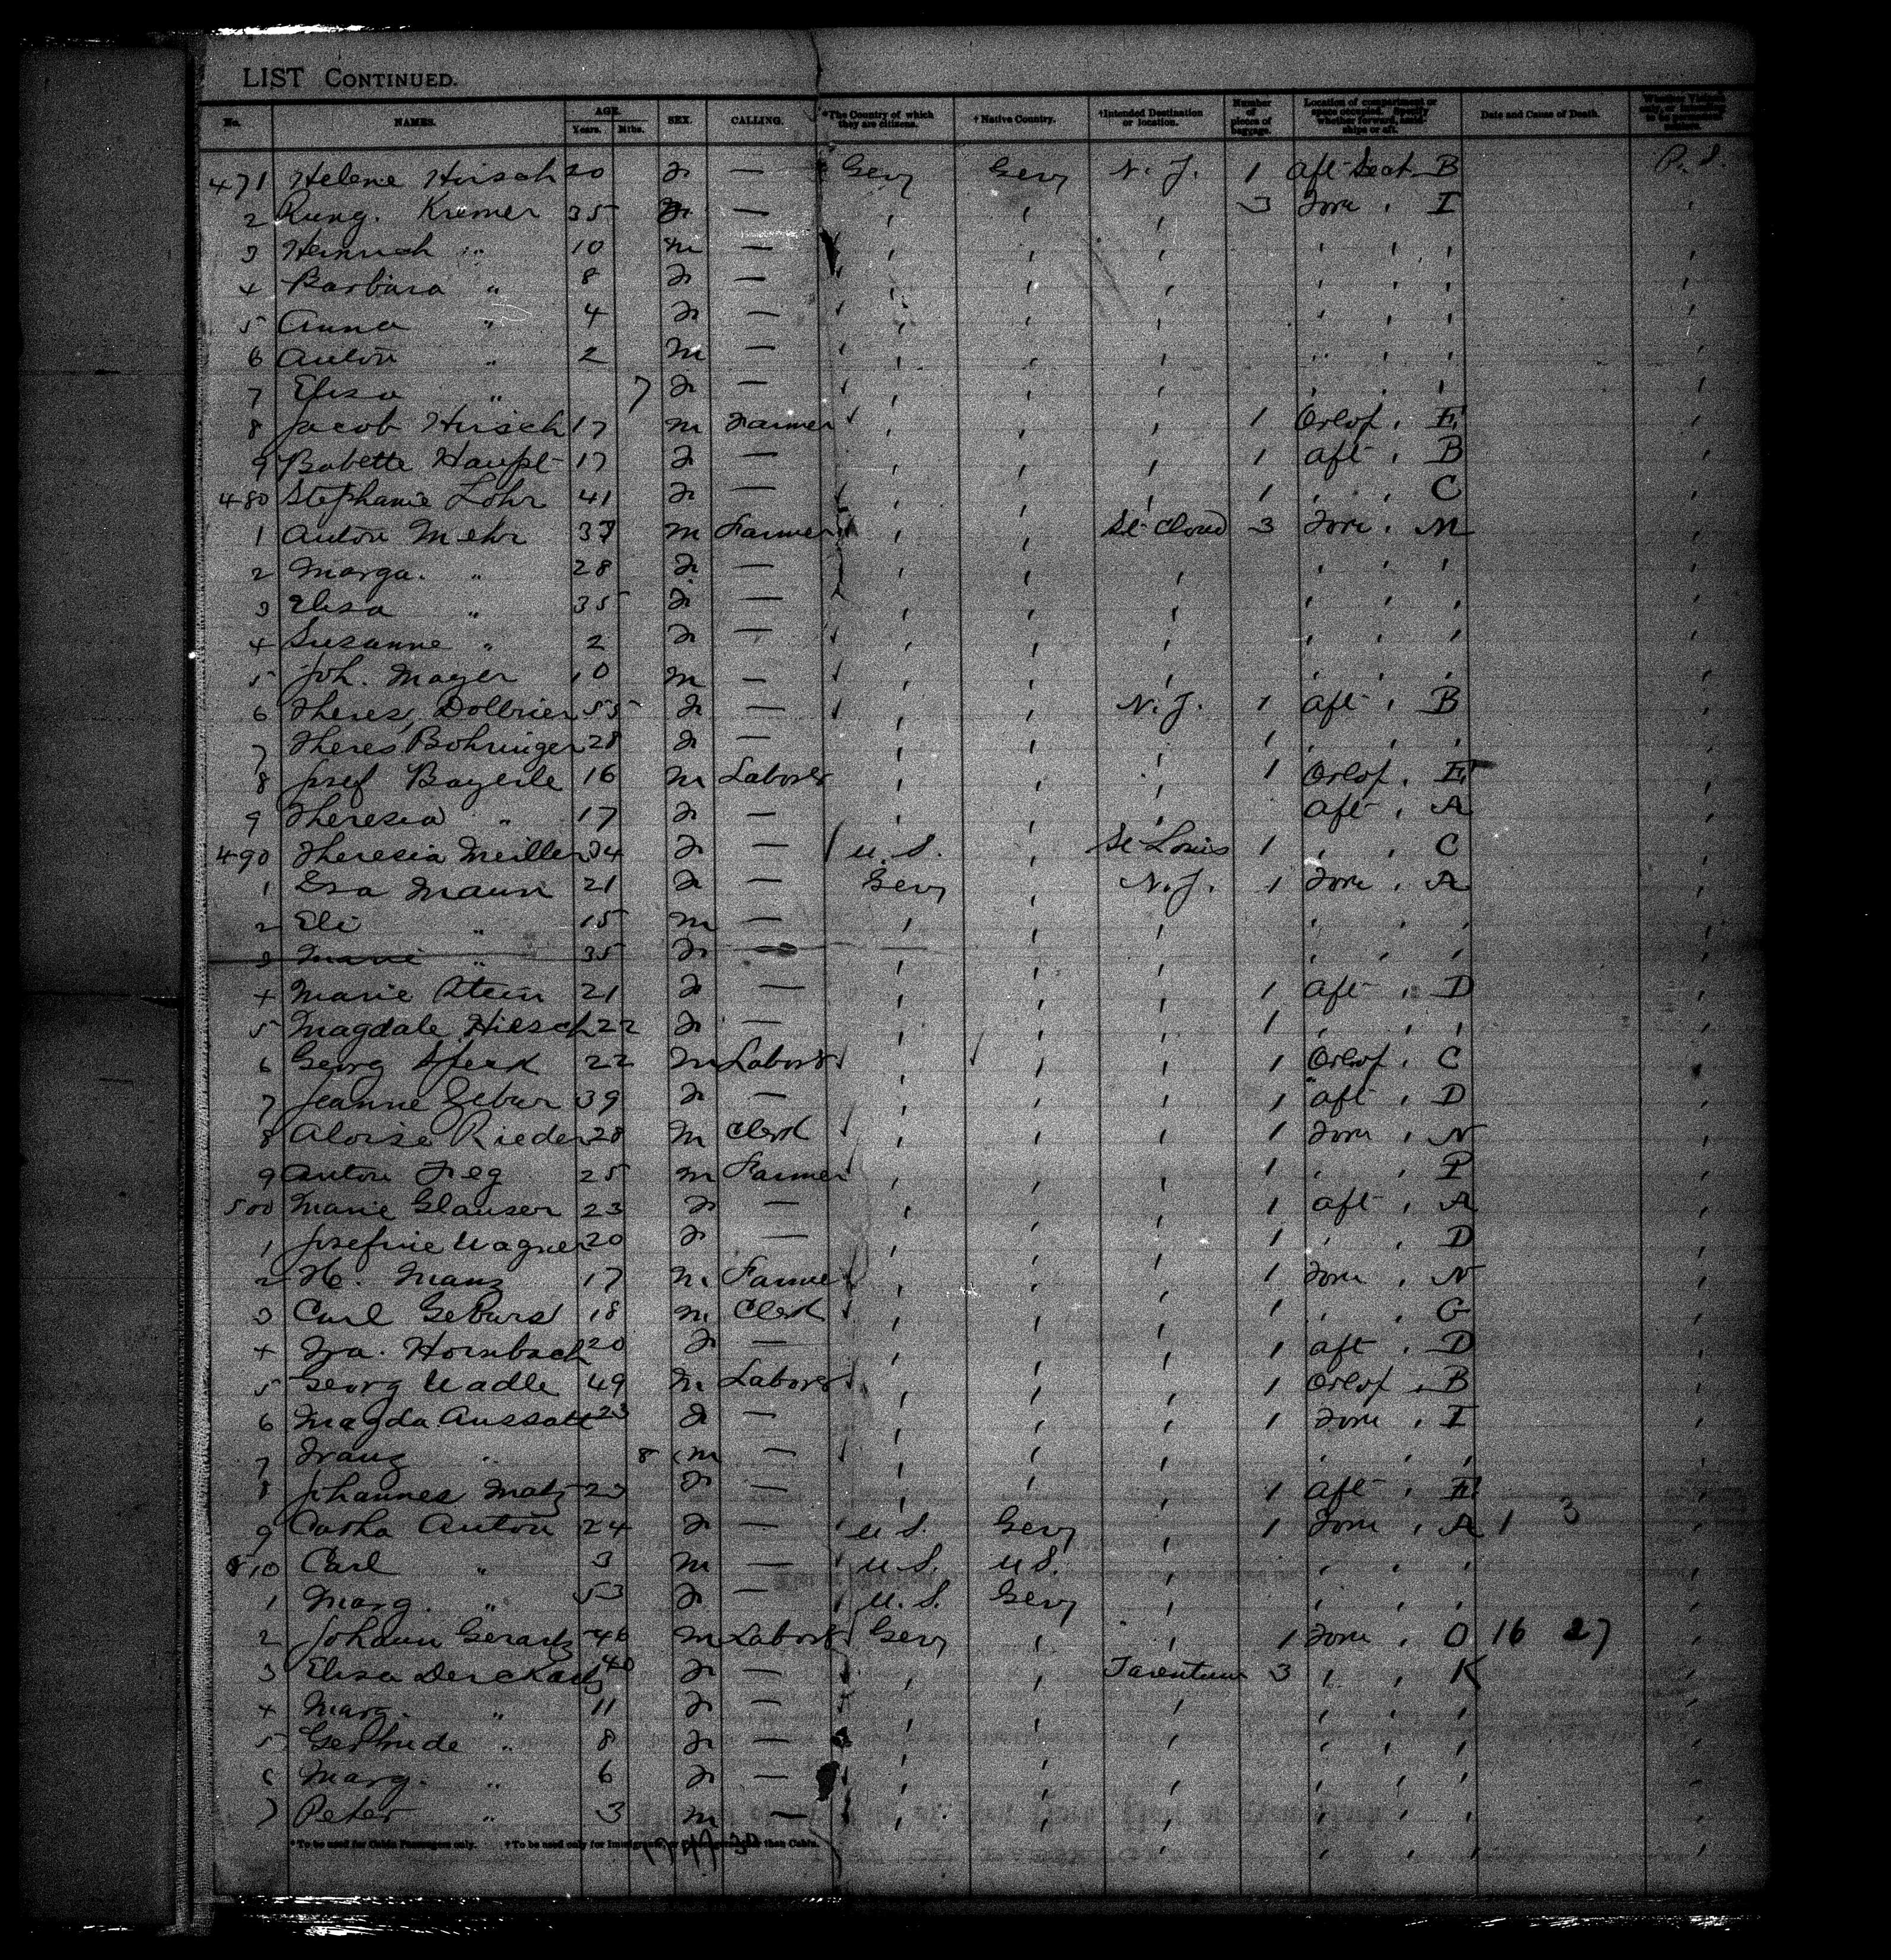 LIST CONTINUED.
No. NAMES. AGE. Years. Mths. SEX. CALLING. *The Country of which they are citizens. †Native Country. †Intended Destination or location. Number of pieces of baggage. Location of compartment or space occupied. Date and Cause of Death.
471 Helene Hirsch 20 F — Gery Gery N. Y. 1 aft Sect. B P. S.
2 Kung. Kremer 35 F — " " " 3 Forw " I "
3 Heinrich " 10 m — " " " " " " "
4 Barbara " 8 F — " " " " " " "
5 Anna " 4 F — " " " " " " "
6 Anton " 2 m — " " " " " " "
7 Elisa " 7 F — " " " " " " "
8 Jacob Hirsch 17 m Farmer " " " 1 Orlop " E "
9 Babette Haupt 17 F — " " " 1 aft " B "
480 Stephanie Lohr 41 F — " " " 1 " " C "
1 Anton Mehr 37 m Farmer " " St Cloud 3 Forw " M "
2 Marga. " 28 F — " " " " " " "
3 Elisa " 35 F — " " " " " " "
4 Suzanne " 2 F — " " " " " " "
5 Joh. Mayer 10 m — " " " " " " "
6 Theres. Dollrier 55 F — " " N. Y. 1 aft " B "
7 Theres Bohringer 28 F — " " " 1 " " " "
8 Josef Bayerle 16 m Laborer " " " 1 Orlop " E "
9 Theresia " 17 F — " " " aft " A "
490 Theresia Meiller 34 F — U. S. " St Louis 1 " " C "
1 Eva Maun 21 F — Gery " N. Y. 1 Forw " A "
2 Eli " 15 m — " " " " " " "
3 Marie " 35 F — " " " " " " "
4 Marie Stein 21 F — " " " 1 aft " D "
5 Magdale Hirsch 22 F — " " " 1 " " " "
6 Georg Sperk 22 m Laborer " " " 1 Orlop " C "
7 Jeanne Gebur 39 F — " " " 1 aft " D "
8 Aloise Rieder 28 m Clerk " " " 1 Forw " N "
9 Anton Frey 25 m Farmer " " " 1 " " P "
500 Marie Glauser 23 F — " " " 1 aft " A "
1 Josefine Wagner 20 F — " " " 1 " " D "
2 H. Manz 17 m. Farmer " " " 1 Forw " N "
3 Carl Geburs 18 m. Clerk " " " 1 " " G "
4 Fra. Hornbach 20 F — " " " 1 aft " D "
5 Georg Wadle 49 m. Laborer " " " 1 Orlop " B "
6 Magda Aussatt 23 F — " " " 1 Forw " I "
7 Franz " 8 m — " " " " " " "
8 Johannes Matz 23 F — " " " 1 aft " E "
9 Anton 24 F — U S. Gery " 1 Forw " A 1 3 "
510 Carl " 3 m — U. S. U S. " " " " "
1 Marg. " 53 F — U. S. Gery " " " " "
2 Johann Gerartz 46 m Laborer Gery " " 1 Forw " O 16 27 "
3 Elisa 40 F — " " Tarentum 3 " " K "
4 Marg. " 11 F — " " " " " " "
5 Gertrude " 8 F — " " " " " " "
6 Marg. " 6 F — " " " " " " "
7 Peter " 3 m — " " " " " " "
*To be used for Cabin Passengers only. †To be used only for Immigrants, or Passengers other than Cabin.